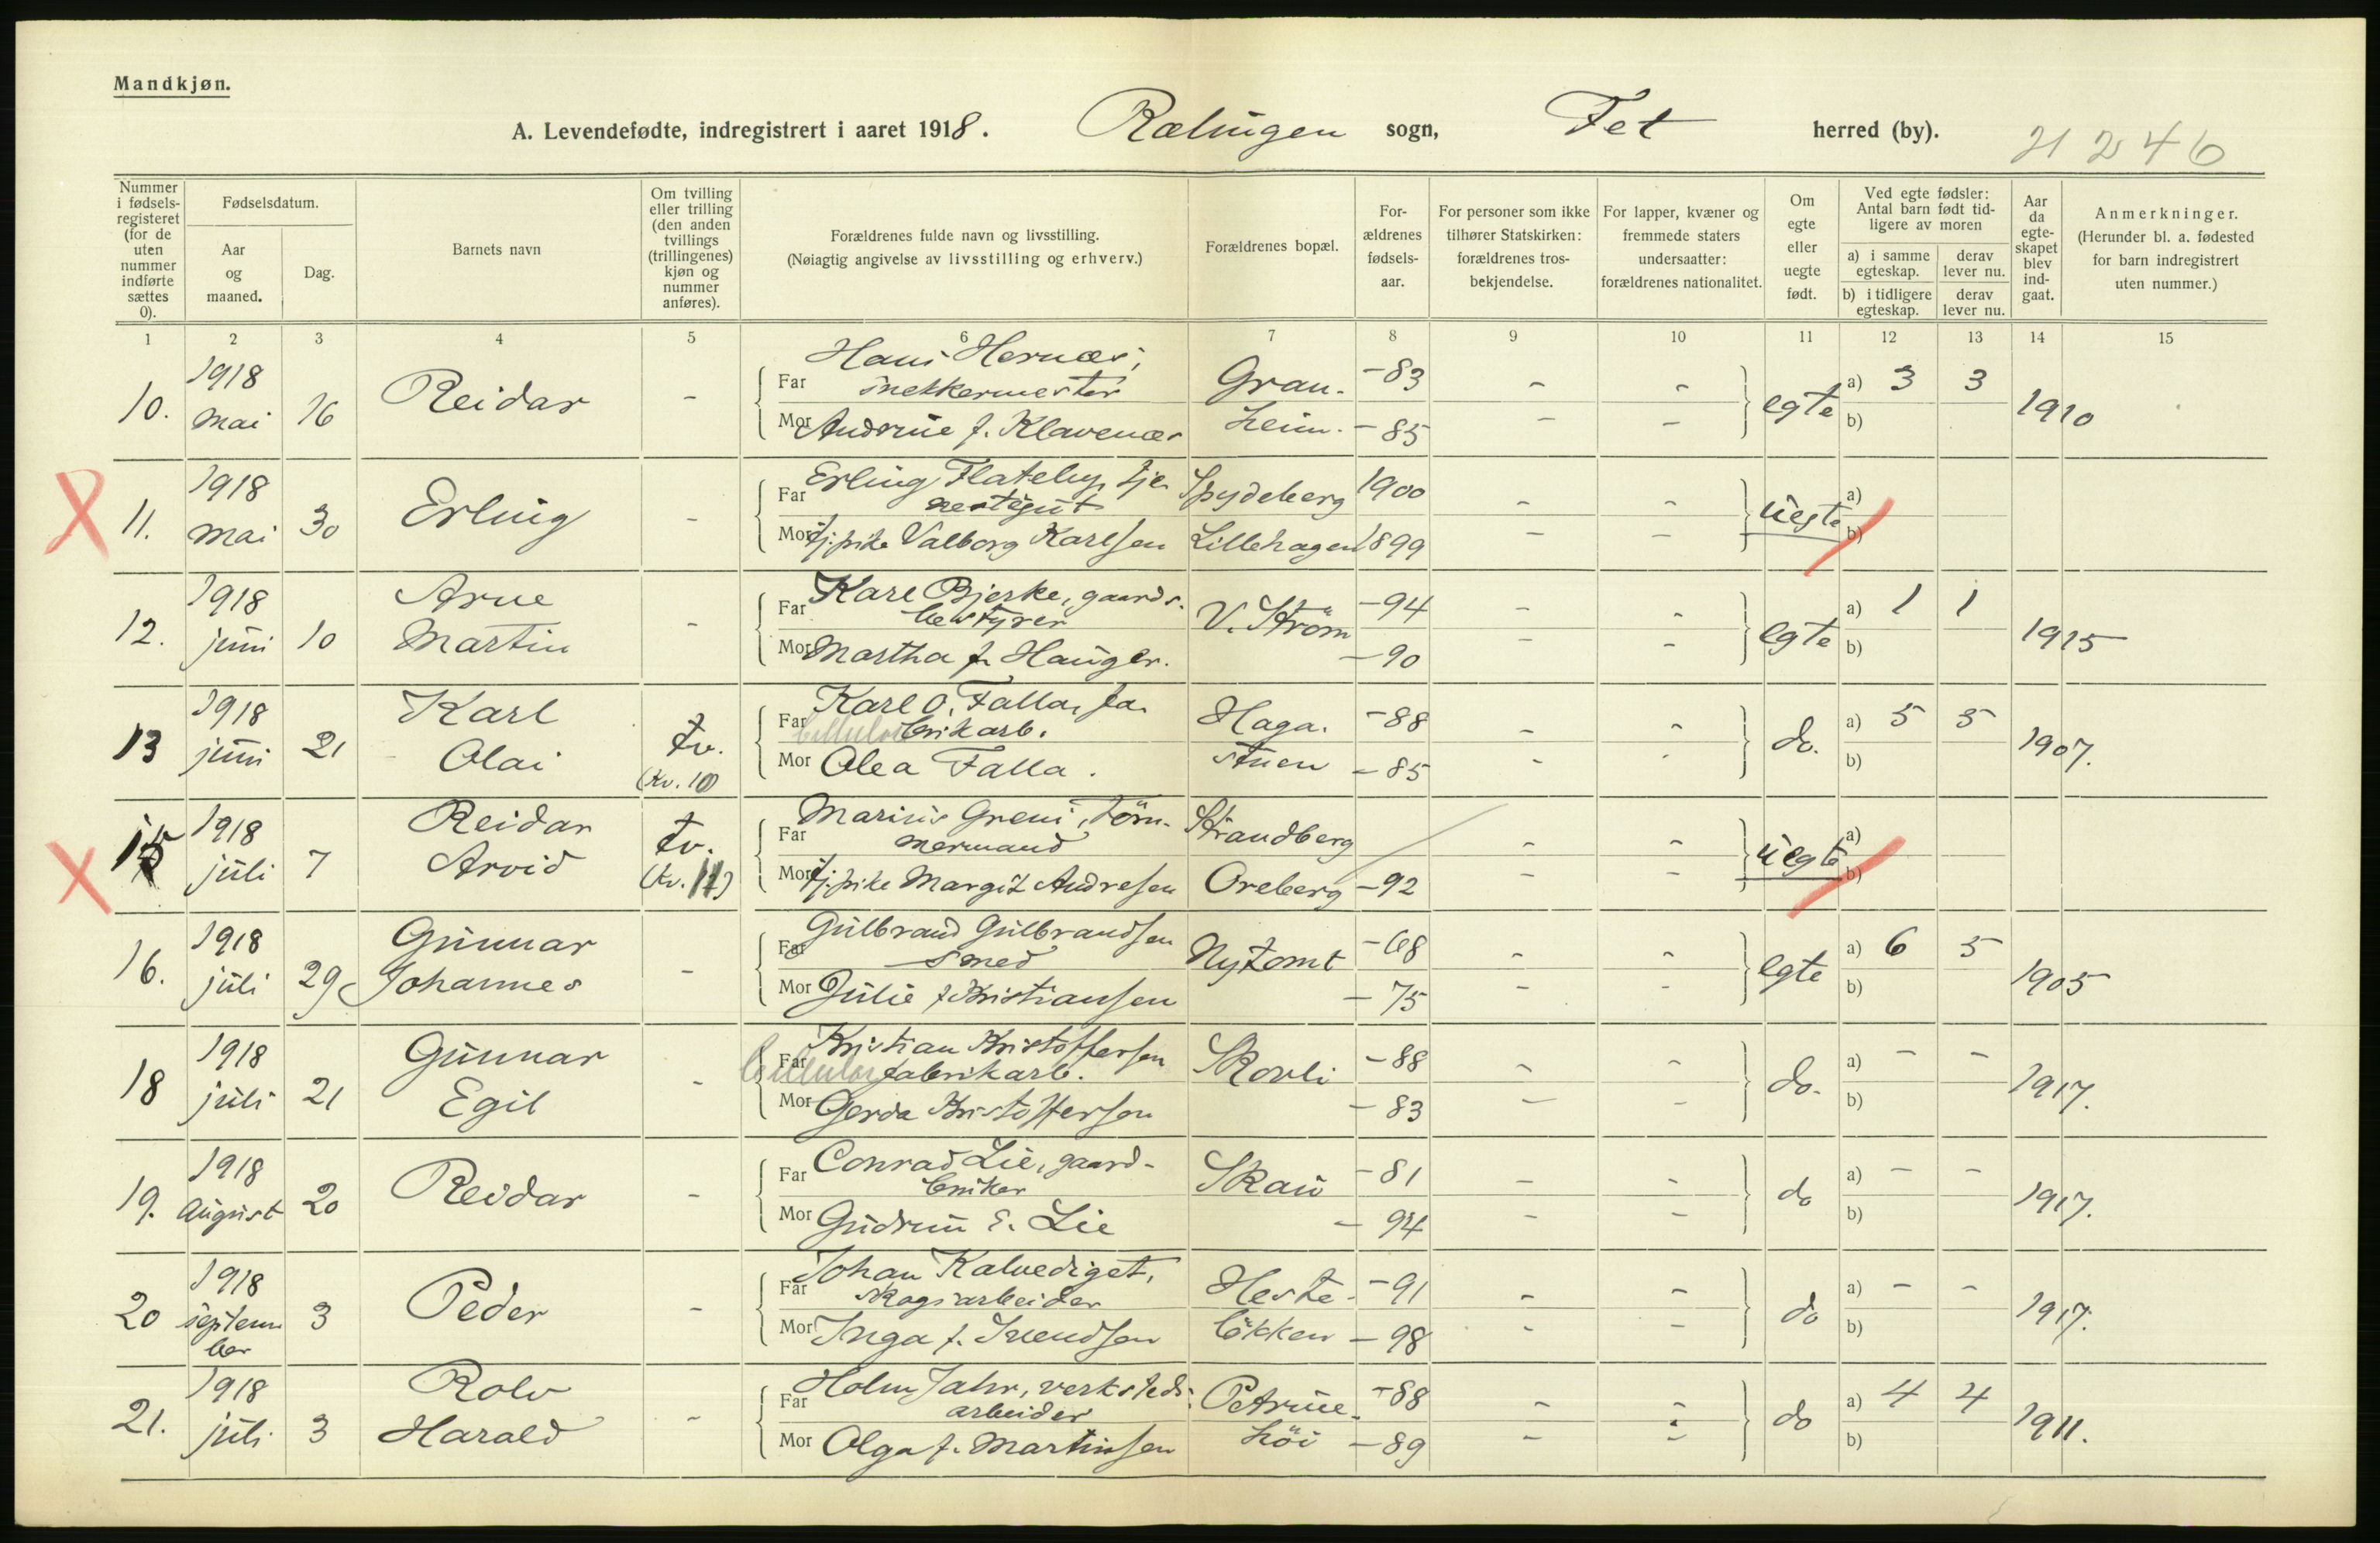 Mandkjøn.
A. Levendefødte, indregistrert i aaret 1918. Rælingen sogn, Fet herred (by).
21 2 46
Nummer i fødsels-registeret (for de uten nummer indførte sættes 0).
Fødselsdatum.
Aar og maaned.
Dag.
Barnets navn
Om tvilling eller trilling (den anden tvillings (trillingenes) kjøn og nummer anføres).
Forældrenes fulde navn og livsstilling.
(Nøiagtig angivelse av livsstilling og erhverv.)
Forældrenes bopæl.
For-ældrenes fødsels-aar.
For personer som ikke tilhører Statskirken: forældrenes tros-bekjendelse.
For lapper, kvæner og fremmede staters undersaatter: forældrenes nationalitet.
Om egte eller uegte født.
Ved egte fødsler: Antal barn født tid-ligere av moren
a) i samme egteskap.
derav lever nu.
b) i tidligere egteskap.
derav lever nu.
Aar da egte-skapet blev ind-gaat.
Anmerkninger.
(Herunder bl. a. fødested for barn indregistrert uten nummer.)
1 2 3 4 5 6 7 8 9 10 11 12 13 14 15
10. 1918 mai 16 Reidar -
Far Hans Hernæs, snekkermester Gran- -83 - -
Mor Andrine f. Klavenæs heim. -85 - -
egte a) 3 3 b) 1910
11. 1918 mai 30 Erling -
Far Erling Flateby, tje- nestegut Spydeberg 1900 - -
Mor Tj.pike Valborg Karlsen Lillehagen 1899 - -
uegte a) b)
12. 1918 juni 10 Arne Martin -
Far Kare Bjerke, gaards- bestyrer V. Strøm -94 - -
Mor Martha f. Hauger. -90 - -
egte a) 1 1 b) 1915
13 1918 juni 21 Karl Olai tv. (Kv. 10)
Far Karl O. Falla, fa- brikarb. Cellulose Haga- -88 - -
Mor Olea Falla. stuen -85 - -
do. a) 5 5 b) 1907.
15 1918 juli 7 Reidar Arvid tv. (Kv. 11)
Far Marius Greni, tøm- mermand Strandberg - -
Mor Tj.pike Margit Andresen Oreberg -92 - -
uegte a) b)
16. 1918 juli 29 Gunnar Johannes -
Far Gulbrand Gulbrandsen smed Nytomt -68 - -
Mor Julie f. Kristiansen -75 - -
egte a) 6 5 b) 1905
18 1918 juli 21 Gunnar Egil -
Far Kristian Kristoffersen Cellulose fabrikarb. Skovli -88 - -
Mor Gerda Kristoffersen -83 - -
do. a) - - b) 1917.
19. 1918 August 20 Reidar -
Far Conrad Lie, gaard- bruker Skau -81 - -
Mor Gudrun E. Lie -94 - -
do a) - - b) 1917.
20 1918 septem ber 3 Peder -
Far Johan Kalvediget, skogsarbeider Heste- -91 - -
Mor Inga f. Svendsen løkken -98 - -
do a) - - b) 1917.
21. 1918 juli 3 Rolv Harald -
Far Holm Jahr, verksteds- arbeider Petrine- -88 - -
Mor Olga f. Martinsen høi -89 - -
do a) 4 4 b) 1911.